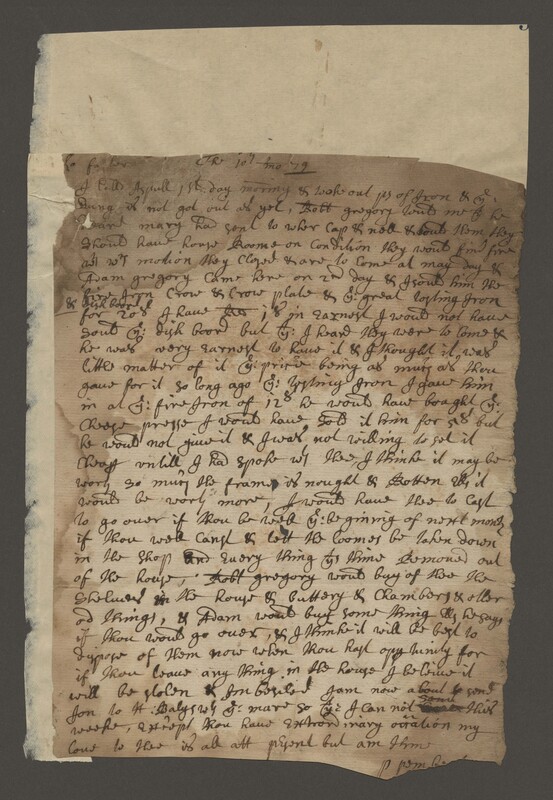 The 10th mo 79
I Recd Itself 1st day morning & wole out ps of Iron & ye:
dung is not got out as yet, Robt gregory tould me yt he
heare mary had sent to wher Cap & nell & tould them they
should have house Roome on Condition they would find fire
att wch motion they Closed & are to come at may day &
Adam gregory Came here on 2nd day & I sould him the
fire Iron Crow & Crow plate & ye: great tosting Iron
& dish bord
for 20s I have 1s in Earnest I would not have
sould ye: dish boord but yt: I heard they were to come &
he was very Earnest to have it & I thought it was
little matter of it ye: price being as much as thou
gave for it so long ago ye: tosting Iron I gave him
in at ye: fire Iron of 12s he would have bought ye:
Cheese presse I would have sould it him for 5s but
he would not give it & I was not willing to sel it
Cheap untill I had spoke wt thee I thinke it may be
worth so much the frame is nought & Rotten Els it
would be worth more, I would have thee to Cast
to go over if thou be well ye: beginning of next month
if thou well Canst & lett the loomes be taken down
in the shop and Every thing yt: time Removed out
of the house, Robt gregory would buy of thee the
shelves in the house & buttery & Chambers & other
od things, & Adam would buy some thing Els he says
if thou would go over, & I thinke it will be best to
dispose of them now when thou hast oppertunity for
if thou leave any thing in the house I beleive it
will be stolen & Imbesiled I am now about to send
Jon to H: Balys wt ye: mare so yt: I can not send this
weeke, Except thou have Extrordinary occation my
love to thee is all att psent but am thine
P pemb